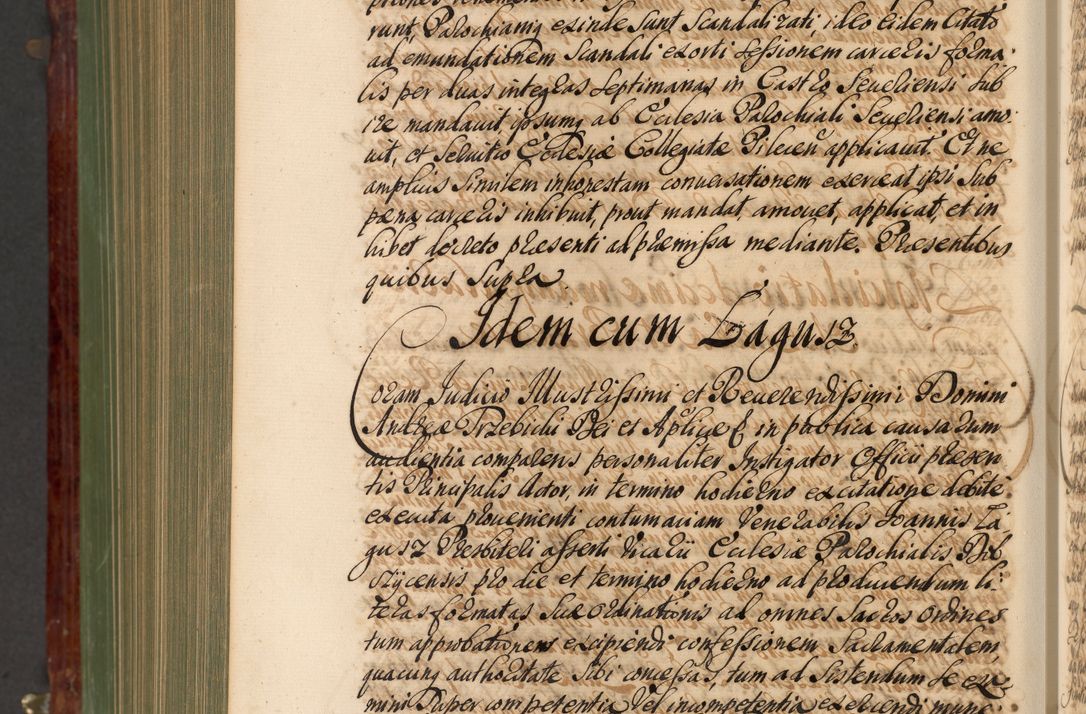 runt, Parochianis exinde sunt Scandalizati, ideo eidem Citato
ad emundationem Scandali exorti sessionem carceris forma-
lis per duas integras Septimanas in Castro Seueriensi sub
ire mandauit, ipsumq ab Ecclesia Parochiali Seueriensi amo-
uit, et Seruitio Ecclesiæ Collegiatæ Pilecen applicauit. Et ne
amplius Similem inhonestam conuersationem exerceat ipsi sub
pæna carceris inhibuit, prout mandat, amouet, applicat, et in
hibet decreto præsenti ad præmissa mediante. Præsentibus
quibus Supra.
Idem cum Łagusz
Coram Judicio Illustrissimi et Reuerendissimi Domini
Andreæ Trzebicki Dei et Aplicæ in publica causarum
audientia comparens personaliter Instigator Officii præsen
tis Principalis Actor, in termino hodierno ex citatione debite
executa proueniente contumaciam Venerabilis Joannis Ła-
gusz Presbiteri asserti Vicarii Ecclesiæ Parochialis
pro die et termino hodierno ad producendum li-
teras formatas Suæ Ordinationis ad omnes Sacros Ordines
tum approbationem excipiendi confessionem Sacramentalem
quacunq authoritate Sibi concessas, tum ad Sistendum se exa-
mini super competentia Vel incompetentia exercendi mune-